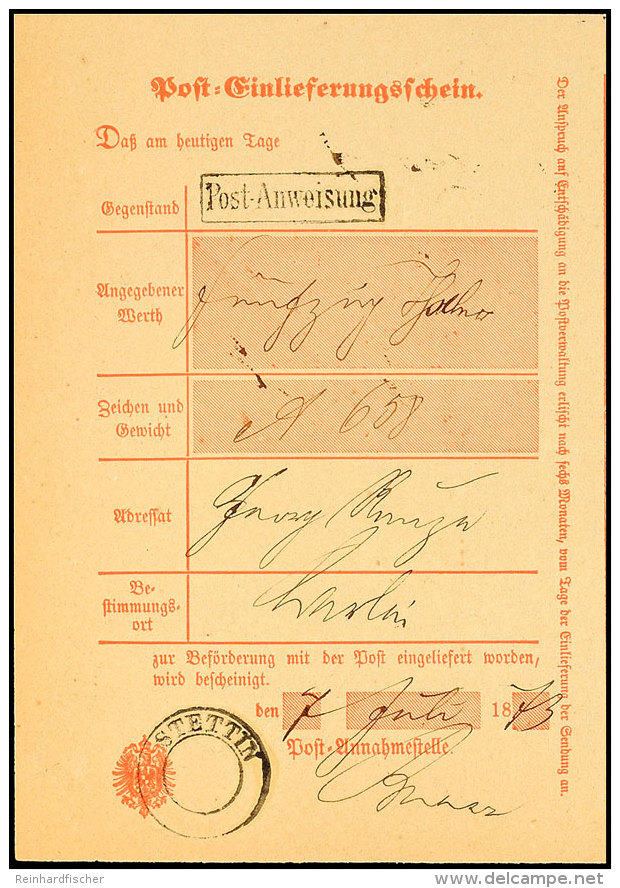 Post-Einlieferungsschein.
Daß am heutigen Tage
Gegenstand
Post-Anweisung
Angegebener
Werth
fünfzig Thaler
Zeichen und
Gewicht
A 658
Adressat
Georg
Be-
stimmungs-
ort
Berlin
zur Beförderung mit der Post eingeliefert worden,
wird bescheinigt.
den 7 Juli 1873
STETTIN
Post-Annahmestelle.
Der Anspruch auf Entschädigung an die Postverwaltung erlischt nach sechs Monaten, vom Tage der Einlieferung der Sendung an.
Reinhardfischer
www.delcampe.net